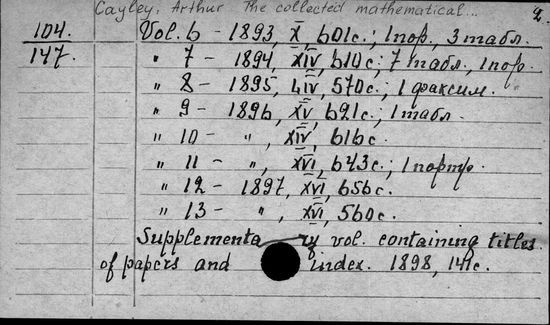 Cayley, Arthur The collected mathematical... 2.
104. Vol. 6 - 1893, X, 601с.; 1 пор., 3 табл.
147. " 7 - 1894, XIV, 610с.; 7 табл., 1 пор.
" 8 - 1895, LIV, 570с.; 1 факсим.
" 9 - 1896, XV, 621с.; 1 табл.
" 10 - ", XIV, 616с.
" 11 - ", XVI, 643с.; 1 портр.
" 12 - 1897, XVI, 656с.
" 13 - ", XVI, 560с.
Supplementary vol. containing titles
of papers and index. 1898, 141с.